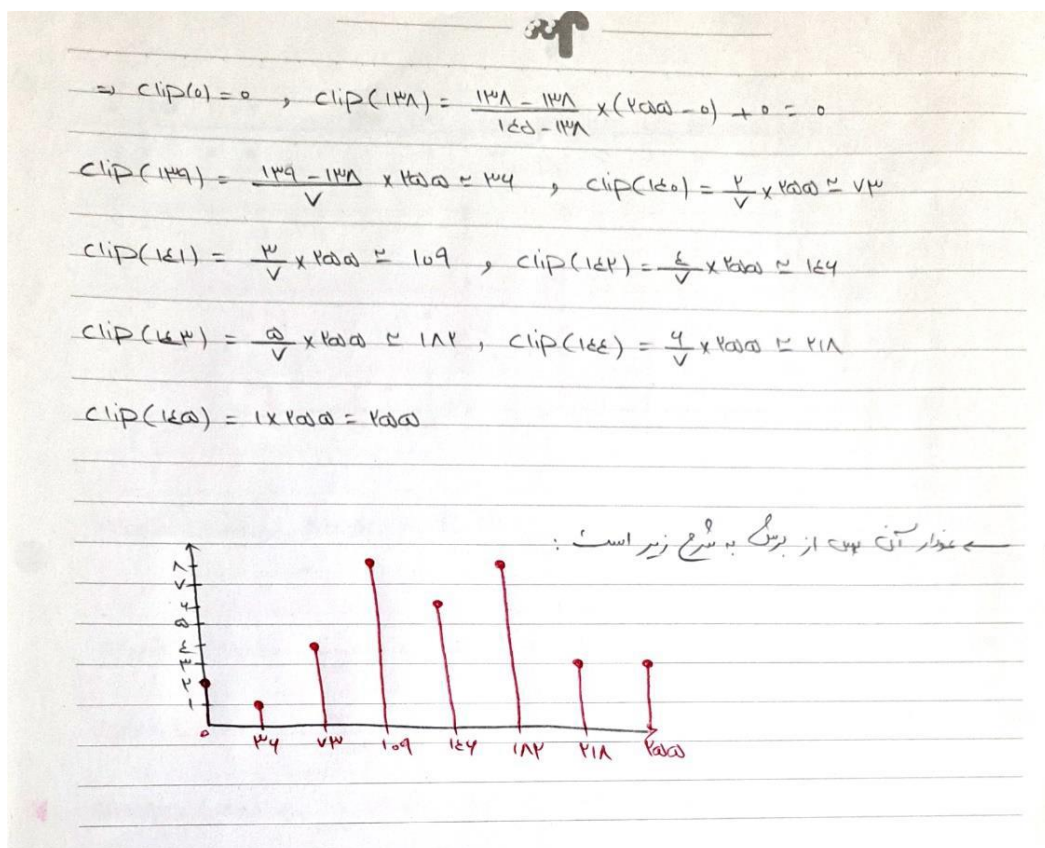 ⇒ clip(۰) = ۰ , clip(۱۳۸) = (۱۳۸ - ۱۳۸)/(۱٤۵ - ۱۳۸) × (۲۵۵ - ۰) + ۰ = ۰
clip(۱۳۹) = (۱۳۹ - ۱۳۸)/۷ × ۲۵۵ ≃ ۳۶ , clip(۱٤۰) = ۲/۷ × ۲۵۵ ≃ ۷۳
clip(۱٤۱) = ۳/۷ × ۲۵۵ ≃ ۱۰۹ , clip(۱٤۲) = ٤/۷ × ۲۵۵ ≃ ۱٤۶
clip(۱٤۳) = ۵/۷ × ۲۵۵ ≃ ۱۸۲ , clip(۱٤٤) = ۶/۷ × ۲۵۵ ≃ ۲۱۸
clip(۱٤۵) = ۱ × ۲۵۵ = ۲۵۵
نمودار آن پس از برش به شرح زیر است :
۸
۷
۶
۵
٤
۳
۲
۱
۰ ۳۶ ۷۳ ۱۰۹ ۱٤۶ ۱۸۲ ۲۱۸ ۲۵۵